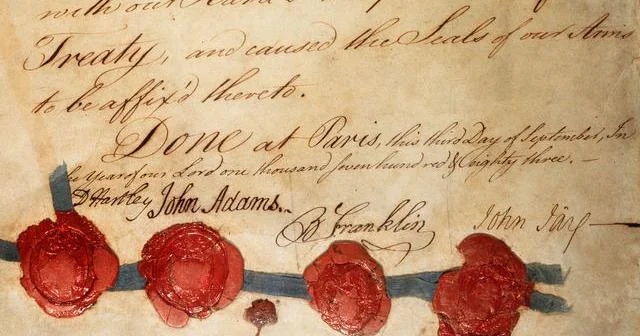 with our Hands
Treaty, and caused the Seals of our Arms
to be affix'd thereto.
Done at Paris, this third Day of September, In
he Year of our Lord one thousand seven hundred & eighty three. —
D Hartley John Adams. B Franklin John Jay —